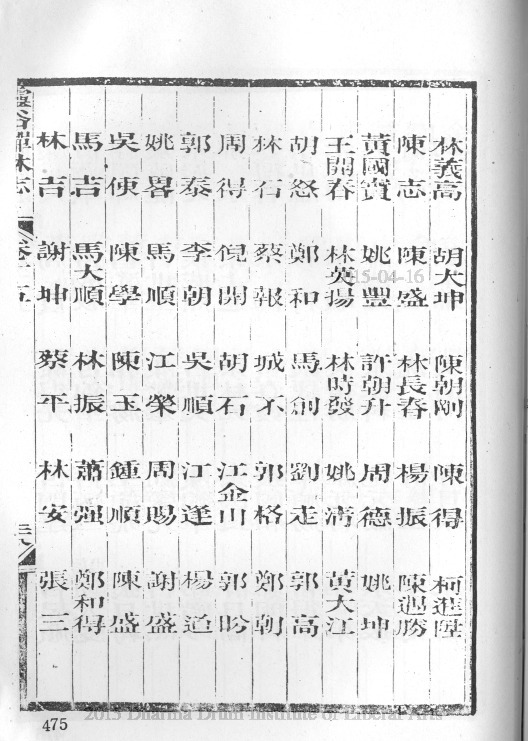 林義高 胡大坤 陳朝剛 陳得 柯進陞
陳志 陳盛 林長春 楊振 陳遇勝
黃國賓 姚豐 許朝升 周德 姚坤
王開春 林英揚 林時發 姚淸 黃大江
胡怒 鄭和 馬創 劉走 郭高
林石 蔡報 城不 郭格 鄭朝
周得 倪開 胡石 江金山 郭盼
郭泰 李朝 吳順 江逢 楊追
姚畧 馬順 江榮 周賜 謝盛
吳使 陳學 陳玉 鍾順 陳盛
馬吉 馬大順 林振 蕭强 鄭和得
林吉 謝坤 蔡平 林安 張三
靈谷禪林志 卷十五
475
2015-04-16
2015 Dharma Drum Institute of Liberal Arts